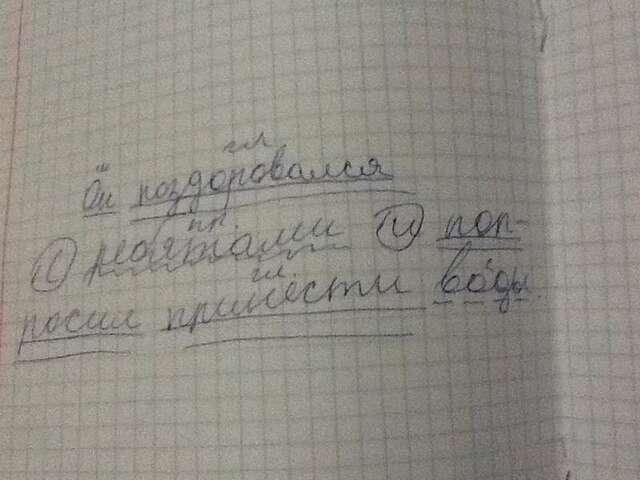 гл
Он поздоровался
пр.
с ребятами и поп-
гл.
росил принести воды.